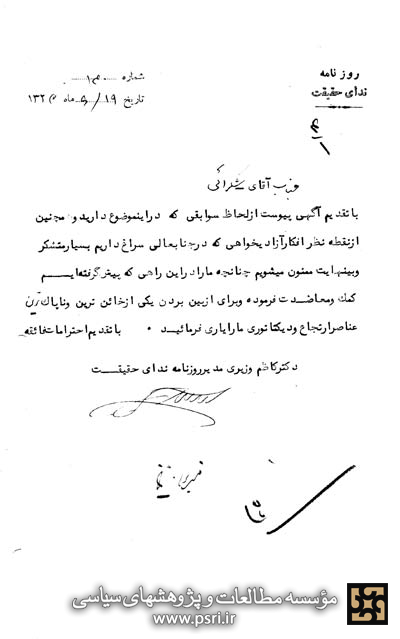 روزنامه
ندای حقیقت
شماره
تاریخ ۱۹ / ۵ ماه ۱۳۲
جناب آقای
با تقدیم آگهی پیوست از لحاظ سوابقی که در اینموضوع دارید و همچنین
از نقطه نظر افکار آزادیخواهی که در جنابعالی سراغ داریم بسیار متشکر
و بینهایت ممنون میشویم چنانچه ما را در این راهی که پیش گرفته‌ایم
کمك و معاضدت فرموده و برای از بین بردن یکی از خائن ترین و ناپاك ترین
عناصر ارتجاع و دیکتاتوری ما را یاری فرمائید ۰ با تقدیم احترامات فائقه
دکتر کاظم وزیری مدیر روزنامه ندای حقیقت
مؤسسه مطالعات و پژوهشهای سیاسی
www.psri.ir